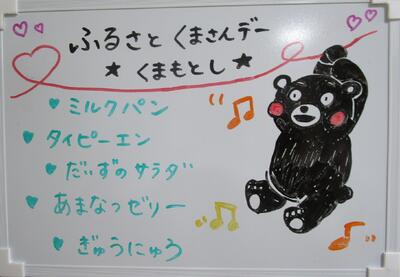 ふるさと くまさんデー
★ くまもとし ★
♥ ミルクパン
♥ タイピーエン
♥ だいずのサラダ
♥ あまなつゼリー
♥ ぎゅうにゅう